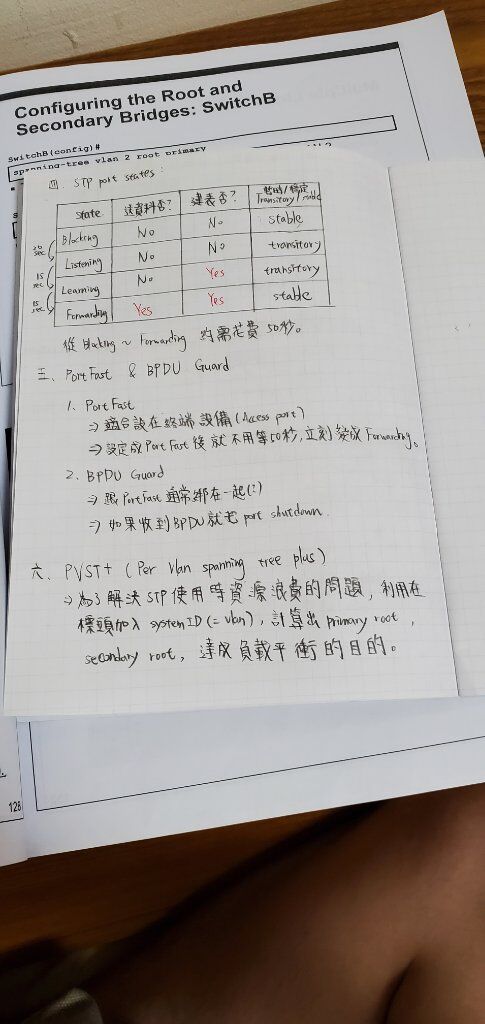 Configuring the Root and
Secondary Bridges: SwitchB
SwitchB(config)#
spanning-tree vlan 2 root primary
四、STP port states:
state 送資料否? 建表否? 暫時/穩定 Transitory/stable
Blocking No No stable
20 sec
Listening No No transitory
15 sec
Learning No Yes transitory
15 sec
Forwarding Yes Yes stable
從 Blocking ~ Forwarding 約需花費 50秒。
五、PortFast & BPDU Guard
1. PortFast
⇒ 適合設在終端設備(Access port)
⇒ 設定成 Port Fast 後就不用等50秒,立刻變成 Forwarding。
2. BPDU Guard
⇒ 跟 PortFast 通常綁在一起(?)
⇒ 如果收到BPDU就把 port shutdown.
六、PVST+ (Per Vlan spanning tree plus)
⇒ 為了解決 STP 使用 時資源浪費的問題,利用在
標頭加入 system ID (= vlan),計算出 primary root,
secondary root,達成負載平衡的目的。
128